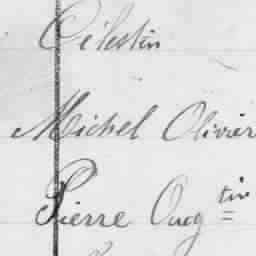 Célestin
Michel Olivier
Pierre Augtin